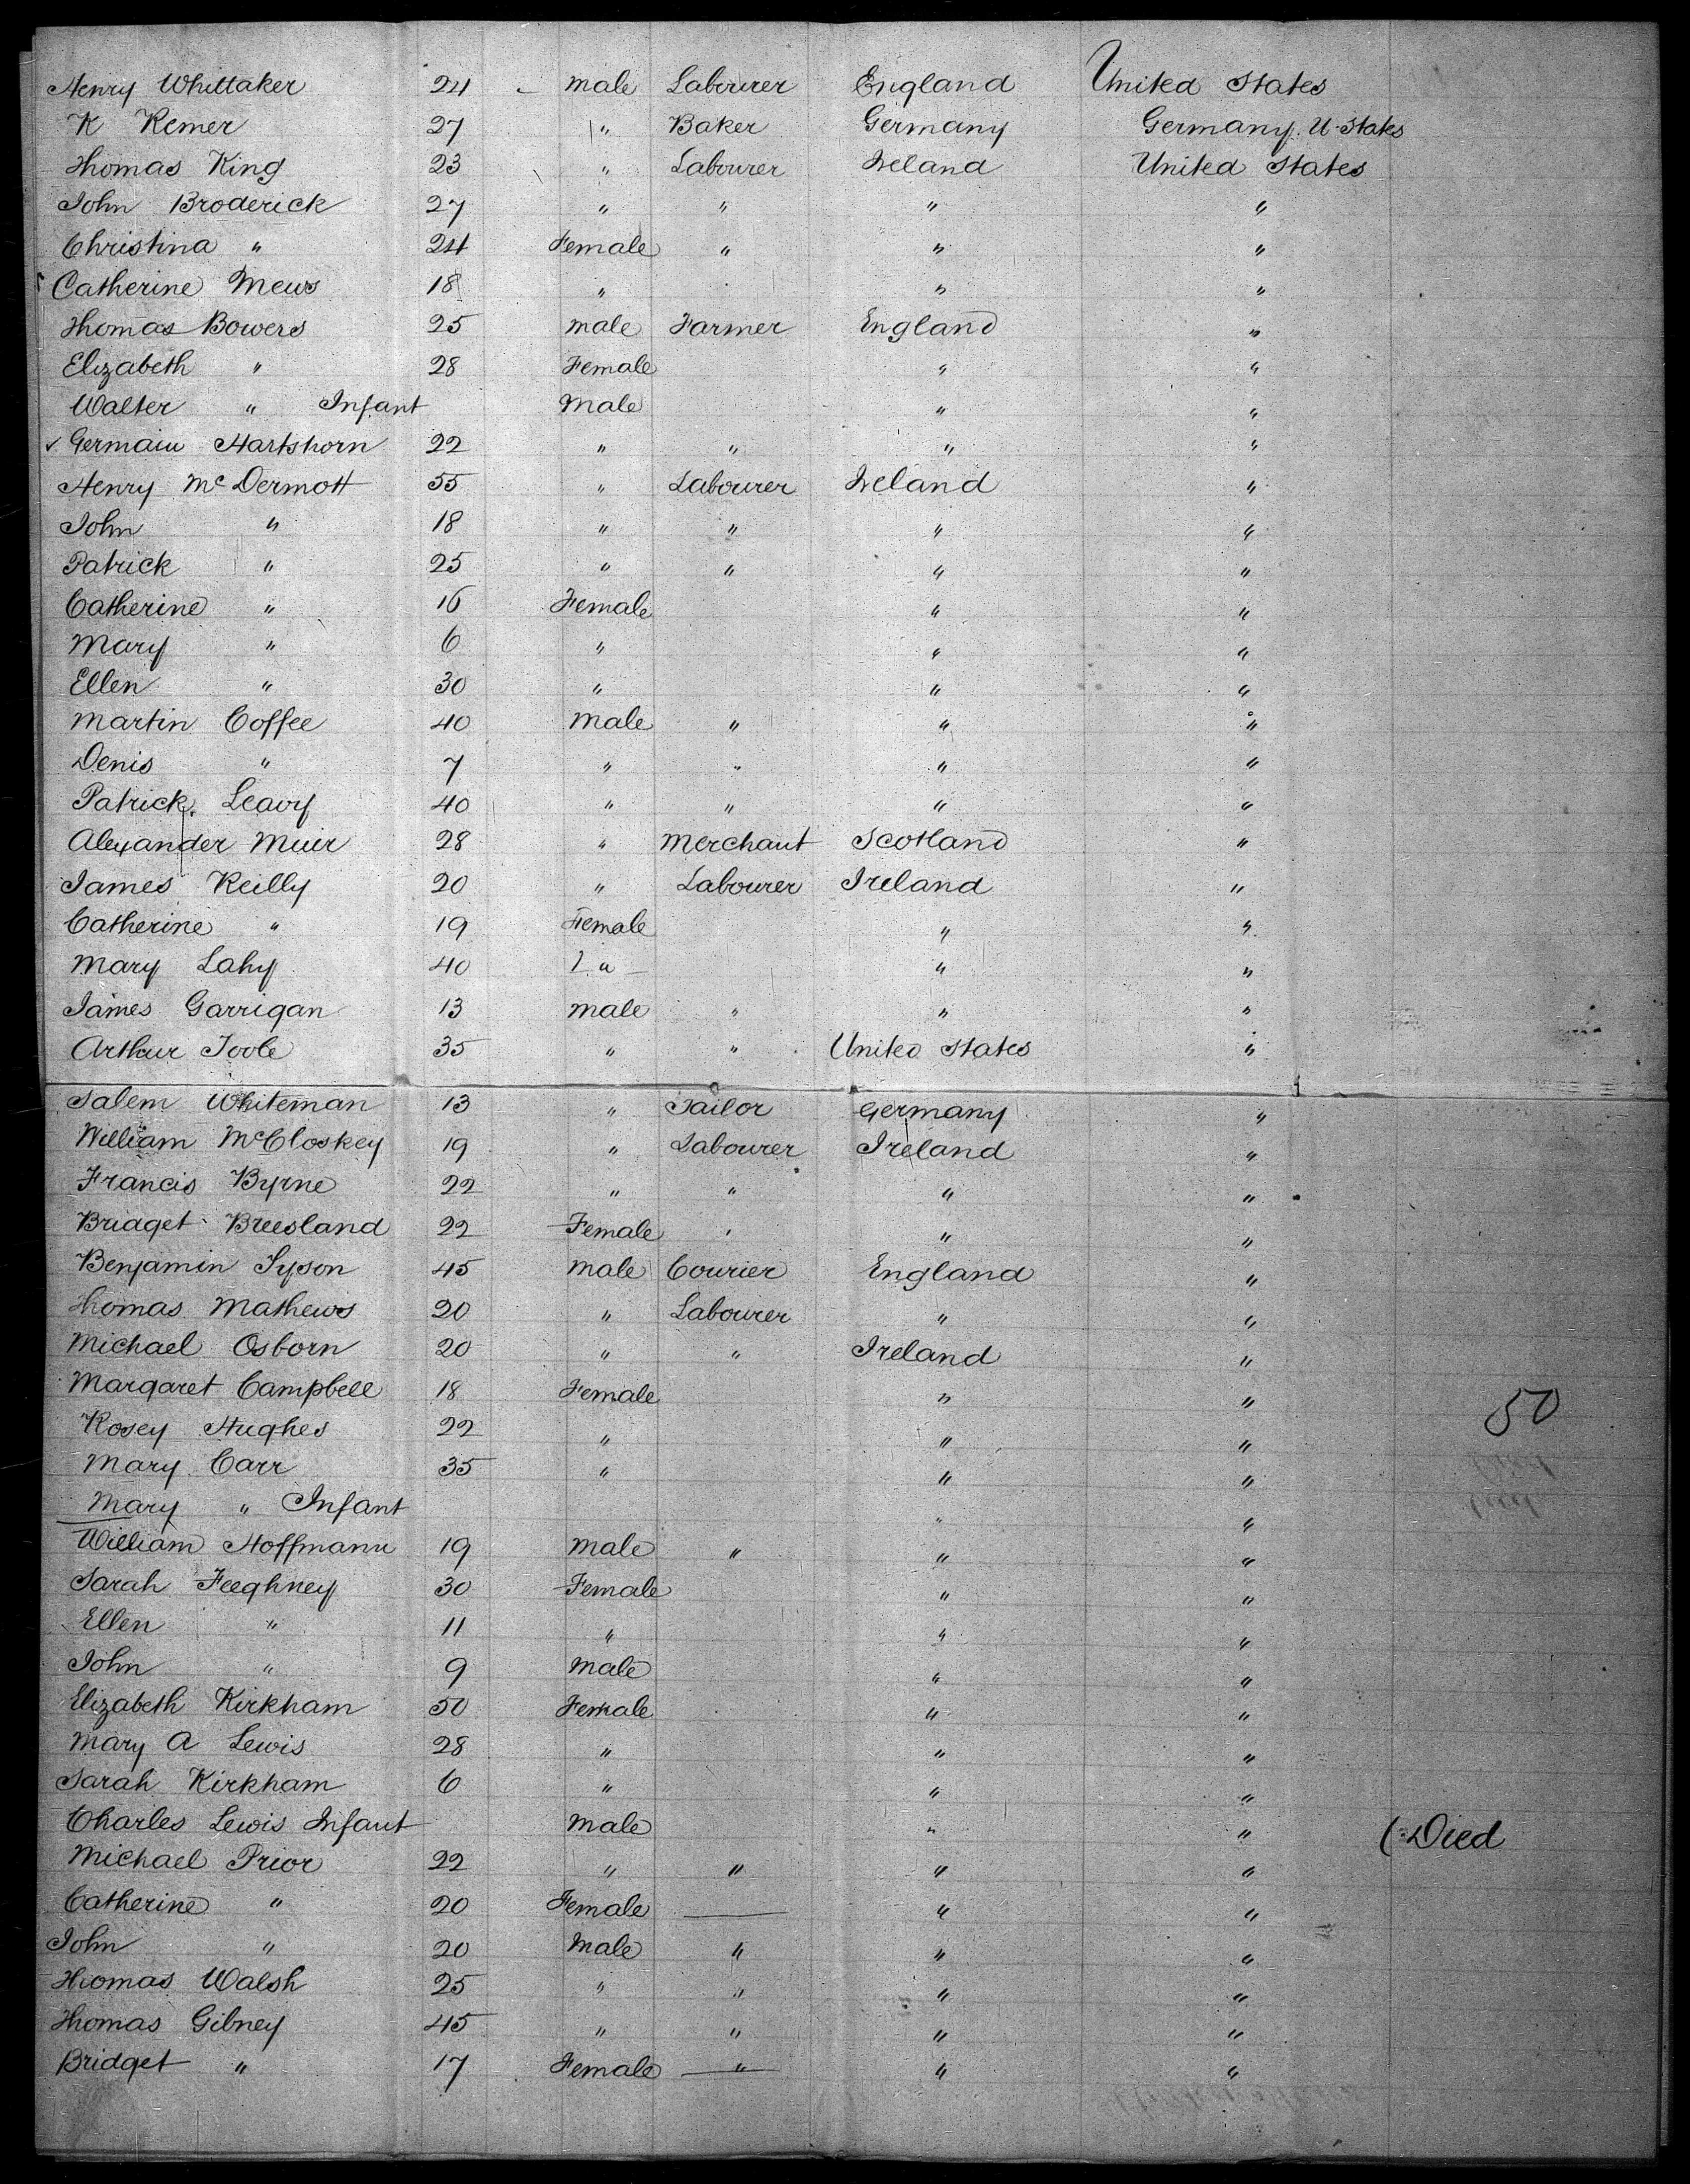 Henry Whittaker 24 male Labourer England United States
K Kemer 27 " Baker Germany Germany. U. States
Thomas King 23 " Labourer Ireland United States
John Broderick 27 " " " "
Christina " 24 Female " " "
Catherine Mews 18 " " "
Thomas Bowers 25 male Farmer England "
Elizabeth " 28 Female " "
Walter " Infant Male " "
✓ Germain Hartshorn 22 " " " "
Henry McDermott 55 " Labourer Ireland "
John " 18 " " " "
Patrick " 25 " " " "
Catherine " 16 Female " "
Mary " 6 " " "
Ellen " 30 " " "
Martin Coffee 40 male " " "
Denis " 7 " " " "
Patrick Leavy 40 " " " "
Alexander Muir 28 " Merchant Scotland "
James Reilly 20 " Labourer Ireland "
Catherine " 19 Female " "
Mary Lahy 40 " " "
James Garrigan 13 male " " "
Arthur Toole 35 " " United States "
Salem Whiteman 13 " Tailor Germany "
William McCloskey 19 " Labourer Ireland "
Francis Byrne 22 " " " "
Bridget Breesland 22 Female " " "
Benjamin Tyson 45 male Courier England "
Thomas Mathews 20 " Labourer " "
Michael Osborn 20 " " Ireland "
Margaret Campbell 18 Female " "
50
Rosey Hughes 22 " " "
Mary Carr 35 " " "
Mary " Infant " "
William Hoffmann 19 male " " "
Sarah Feeghney 30 Female " "
Ellen " 11 " " "
John " 9 Male " "
Elizabeth Kirkham 50 Female " "
Mary A Lewis 28 " " "
Sarah Kirkham 6 " " "
Charles Lewis Infant male " " (Died
Michael Prior 22 " " " "
Catherine " 20 Female — " "
John " 20 Male " " "
Thomas Walsh 25 " " " "
Thomas Gibney 45 " " " "
Bridget " 17 Female " " "